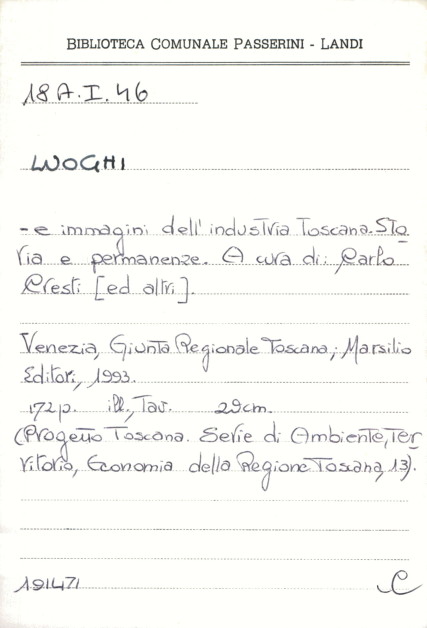 BIBLIOTECA COMUNALE PASSERINI - LANDI
18 A.I.46
LUOGHI
- e immagini dell'industria Toscana. Sto
ria e permanenze. A cura di: Carlo
Cresti [ed altri].
Venezia, Giunta Regionale Toscana; Marsilio
Editori, 1993.
172 p. ill., Tav. 29cm.
(Progetto Toscana. Serie di Ambiente, Ter
ritorio, Economia della Regione Toscana, 13).
191471 C